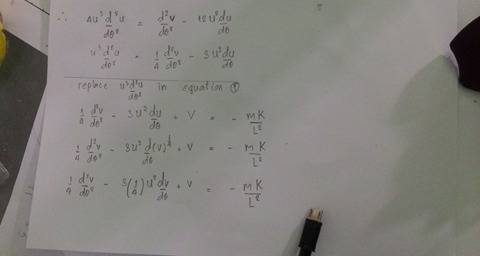 ∴ 4u³ d²u/dθ² = d²v/dθ² - 12u² du/dθ
u³ d²u/dθ² = 1/4 d²v/dθ² - 3u² du/dθ
replace u³ d²u/dθ² in equation ①
1/4 d²v/dθ² - 3u² du/dθ + V = - mK/L²
1/4 d²v/dθ² - 3u² d/dθ (v)^1/4 + v = - mK/L²
1/4 d²v/dθ² - 3(1/4) u² dv/dθ + v = - mK/L²